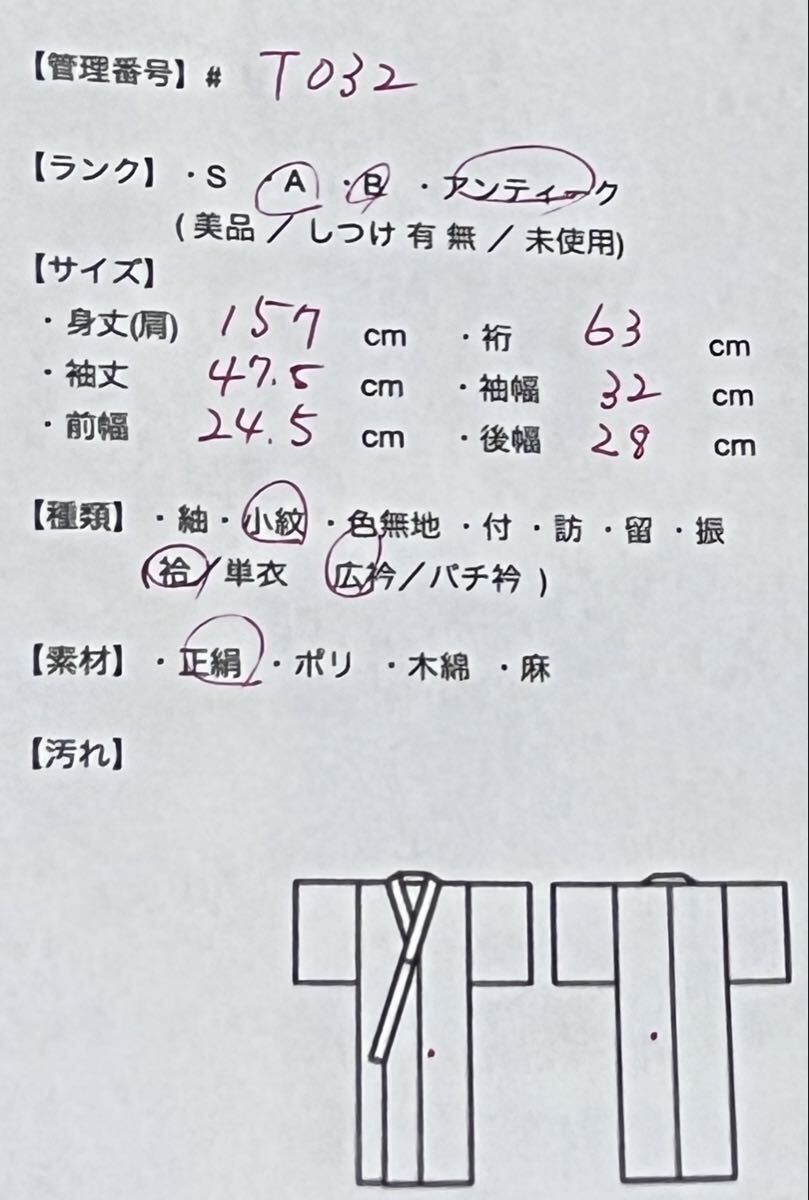 【管理番号】# T032
【ランク】・S ・A ・B ・アンティーク
(美品/しつけ有 無/未使用)
【サイズ】
・身丈(肩) 157 cm ・裄 63 cm
・袖丈 47.5 cm ・袖幅 32 cm
・前幅 24.5 cm ・後幅 28 cm
【種類】・紬・小紋・色無地・付・訪・留・振
(袷/単衣 広衿/バチ衿 )
【素材】・正絹・ポリ・木綿・麻
【汚れ】